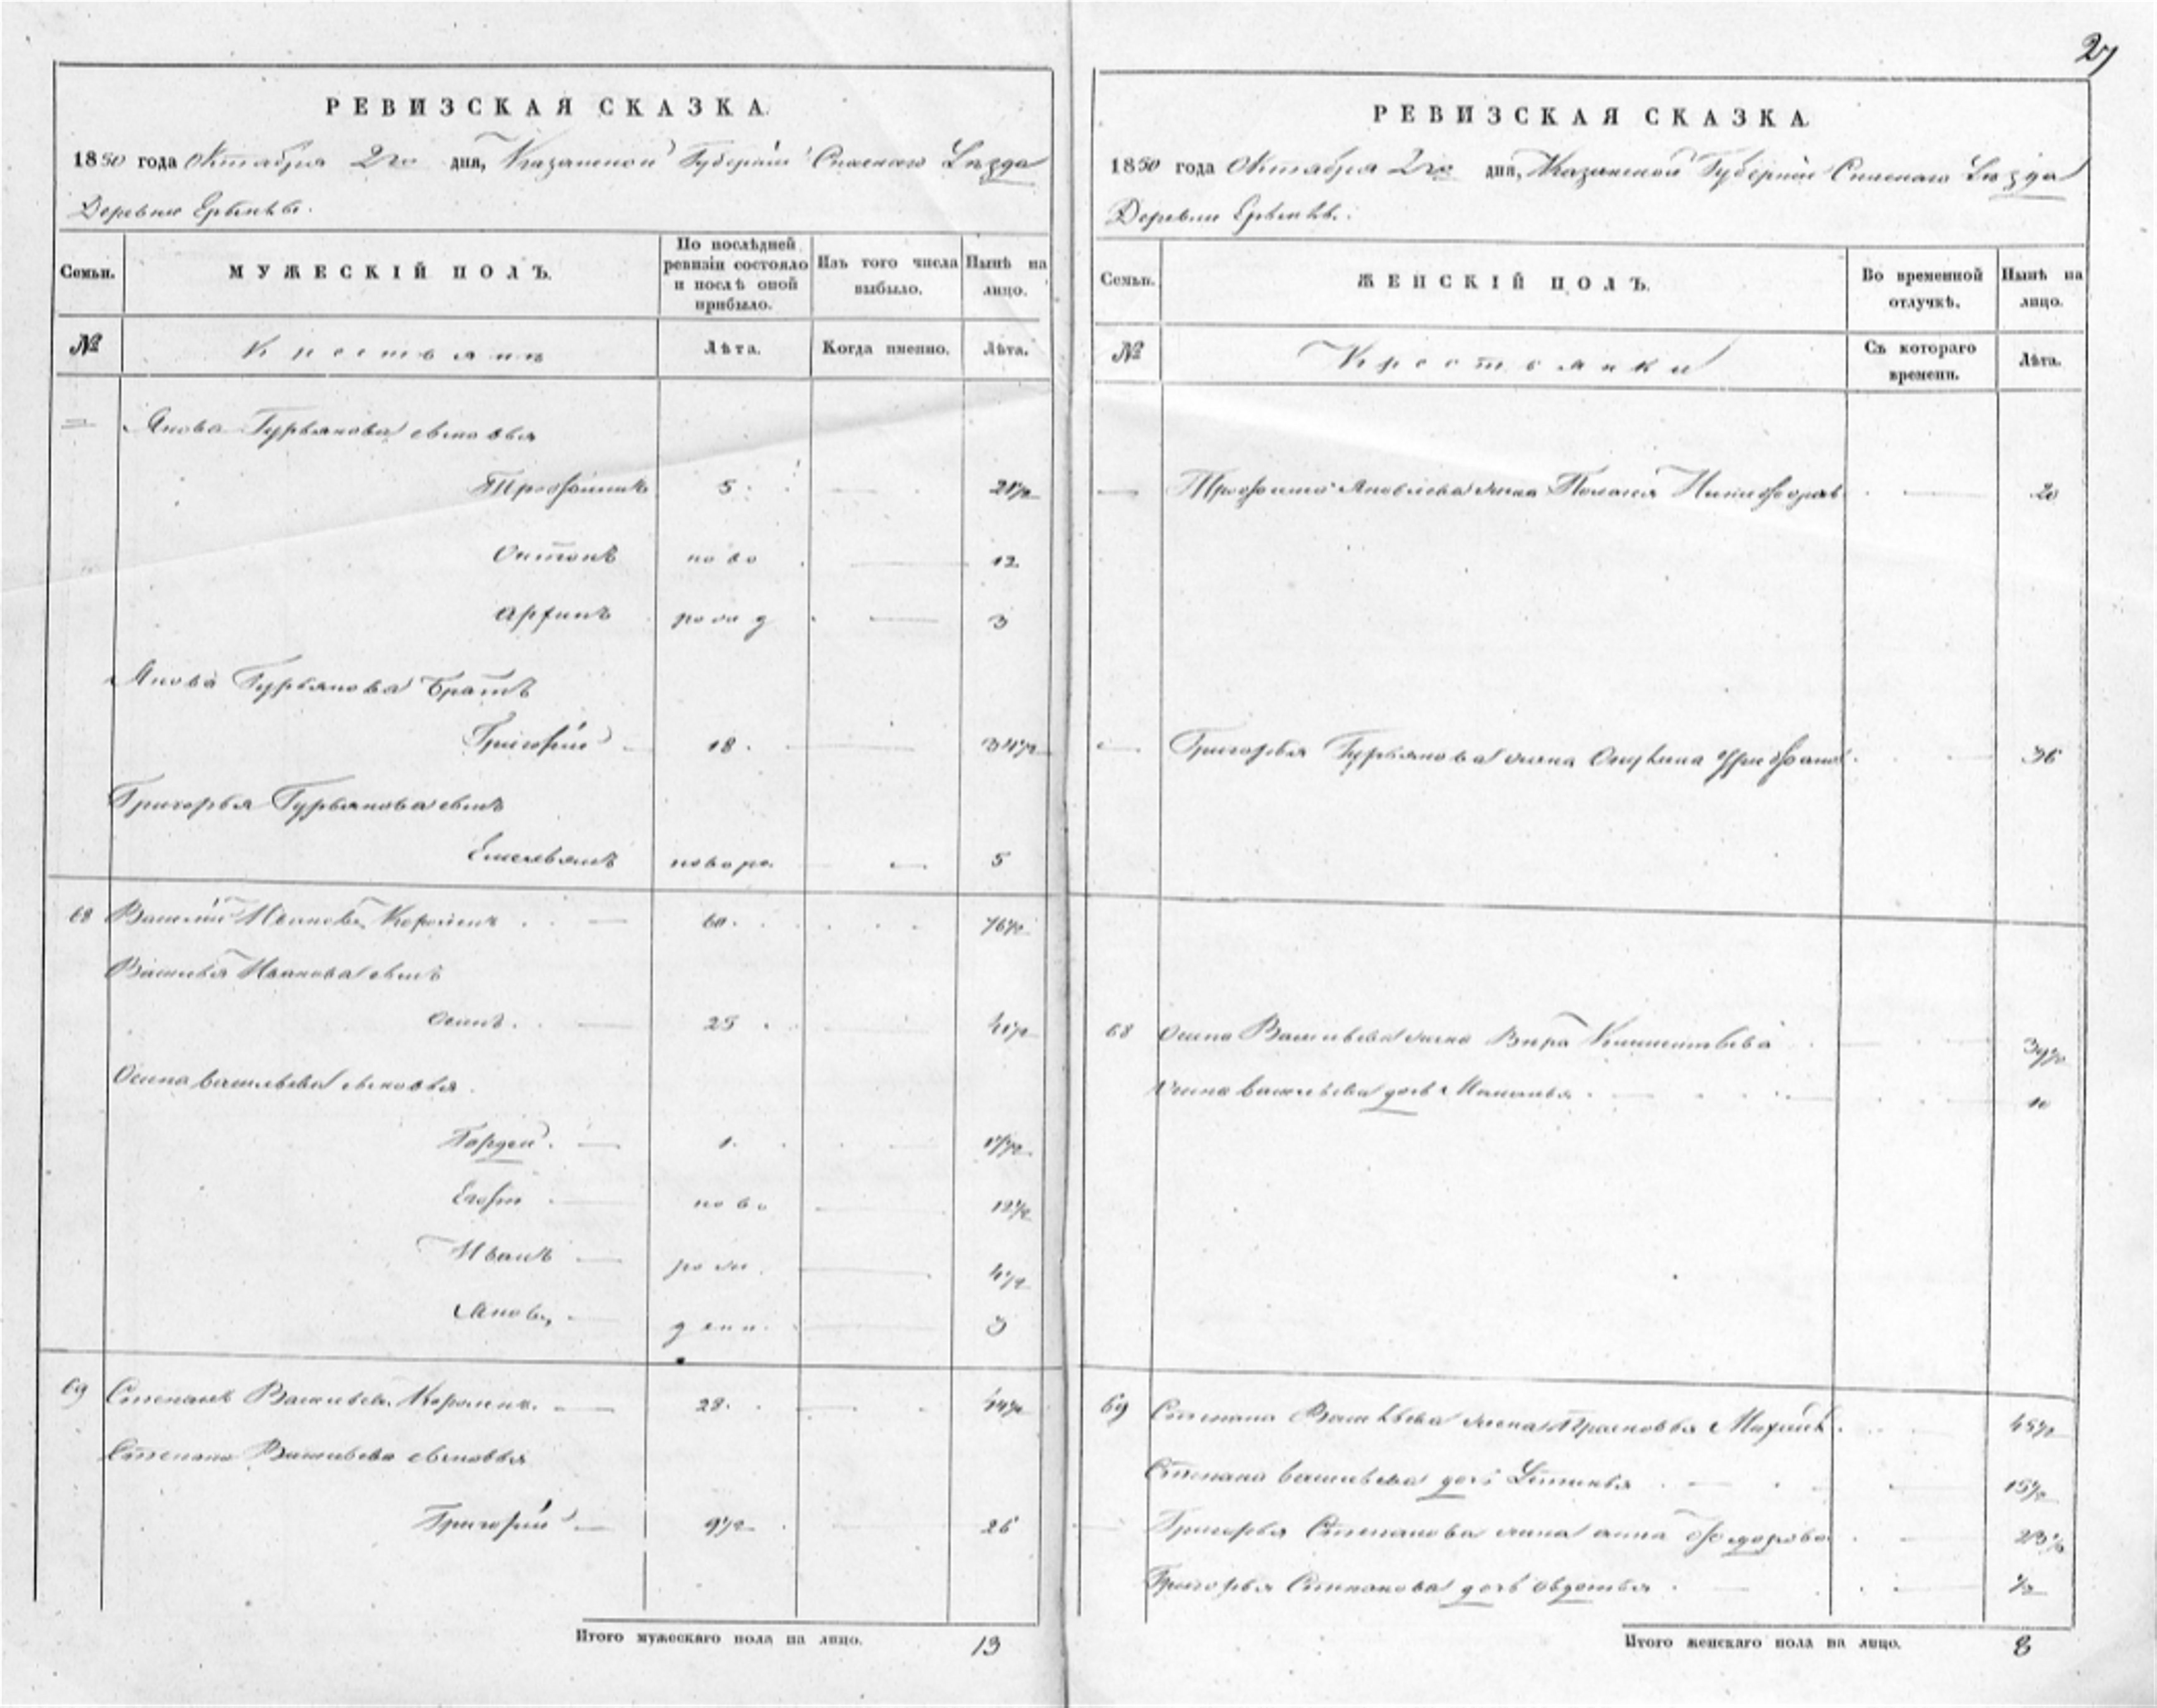 27
РЕВИЗСКАЯ СКАЗКА.
1850 года Октября 2го дня, Казанской Губернiи Спаскаго Уѣзда
Деревни
Семьи.
МУЖЕСКIЙ ПОЛЪ.
По послѣдней ревизiи состояло и послѣ оной прибыло.
Изъ того числа выбыло.
Нынѣ на лицо.
№
Крестьяне
Лѣта.
Когда именно.
Лѣта.
Якова Гурьянова сыновья
Трофимъ 5 21½
Антонъ ново 12
рожд 3
Якова Гурьянова Братъ
Григорiй 18 34½
Григорья Гурьянова сынъ
Емельянъ новоро 5
68 Василiй Ивановъ 60 76½
Василья Иванова сынъ
Осипъ 25 41½
Осипа Васильева сыновья
Гордей 1 17½
Егоръ ново 12½
Иванъ рож 4½
Яковъ денн 3
69 Степанъ Васильевъ 28 44½
Степана Васильева сыновья
Григорiй 9½ 26
Итого мужескаго пола на лицо. 13
РЕВИЗСКАЯ СКАЗКА.
1850 года Октября 2го дня, Казанской Губернiи Спаскаго Уѣзда
Деревни
Семьи.
ЖЕНСКIЙ ПОЛЪ.
Во временной отлучкѣ.
Нынѣ на лицо.
№
Крестьянки
Съ котораго времени.
Лѣта.
Трофима Яковлева жена Никифоров 20
Григорья Гурьянова жена 36
68 Осипа Васильева жена Вѣра 39½
Осипа Васильева дочь 10
69 Степана Васильева жена Прасковья Михайл 45½
Степана Васильева дочь Устинья 15½
Григорья Степанова жена анна Федорова 23½
Григорья Степанова дочь овдотья ½
Итого женскаго пола на лицо. 8